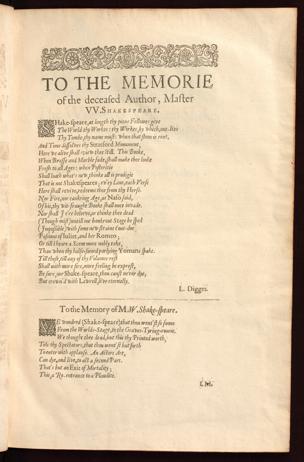 TO THE MEMORIE
of the deceased Author, Master
VV. SHAKESPEARE.
SHake-speare, at length thy pious fellowes giue
The world thy Workes: thy Workes, by which, out-liue
Thy Tombe, thy name must: when that stone is rent,
And Time dissolues thy Stratford Moniment,
Here we aliue shall view thee still. This Booke,
When Brasse and Marble fade, shall make thee looke
Fresh to all Ages: when Posteritie
Shall loath what's new, thinke all is prodegie
That is not Shake-speares; eu'ry Line, each Verse
Here shall reuiue, redeeme thee from thy Herse.
Nor Fire, nor cankring Age, as Naso said,
Of his, thy wit-fraught Booke shall once inuade.
Nor shall I e're beleeue, or thinke thee dead
(Though mist) vntill our bankrout Stage be sped
(Impossible) with some new straine t'out-do
Passions of Iuliet, and her Romeo;
Or till I heare a Scene more nobly take,
Then when thy half-Sword parlying Romans spake.
Till these, till any of thy Volumes rest
Shall with more fire, more feeling be exprest,
Be sure, our Shake-speare, thou canst neuer dye,
But crown'd with Lawrell, liue eternally.
L. Digges.
To the Memory of M. W. Shake-speare.
WEE wondred (Shake-speare) that thou went'st so soone
From the Worlds-Stage, to the Graues-Tyring-roome.
Wee thought thee dead, but this thy printed worth,
Tels thy Spectators, that thou went'st but forth
To enter with applause. An Actors Art,
Can dye, and liue, to acte a second part.
That's but an Exit of Mortalitie;
This, a Re-entrance to a Plaudite.
I. M.